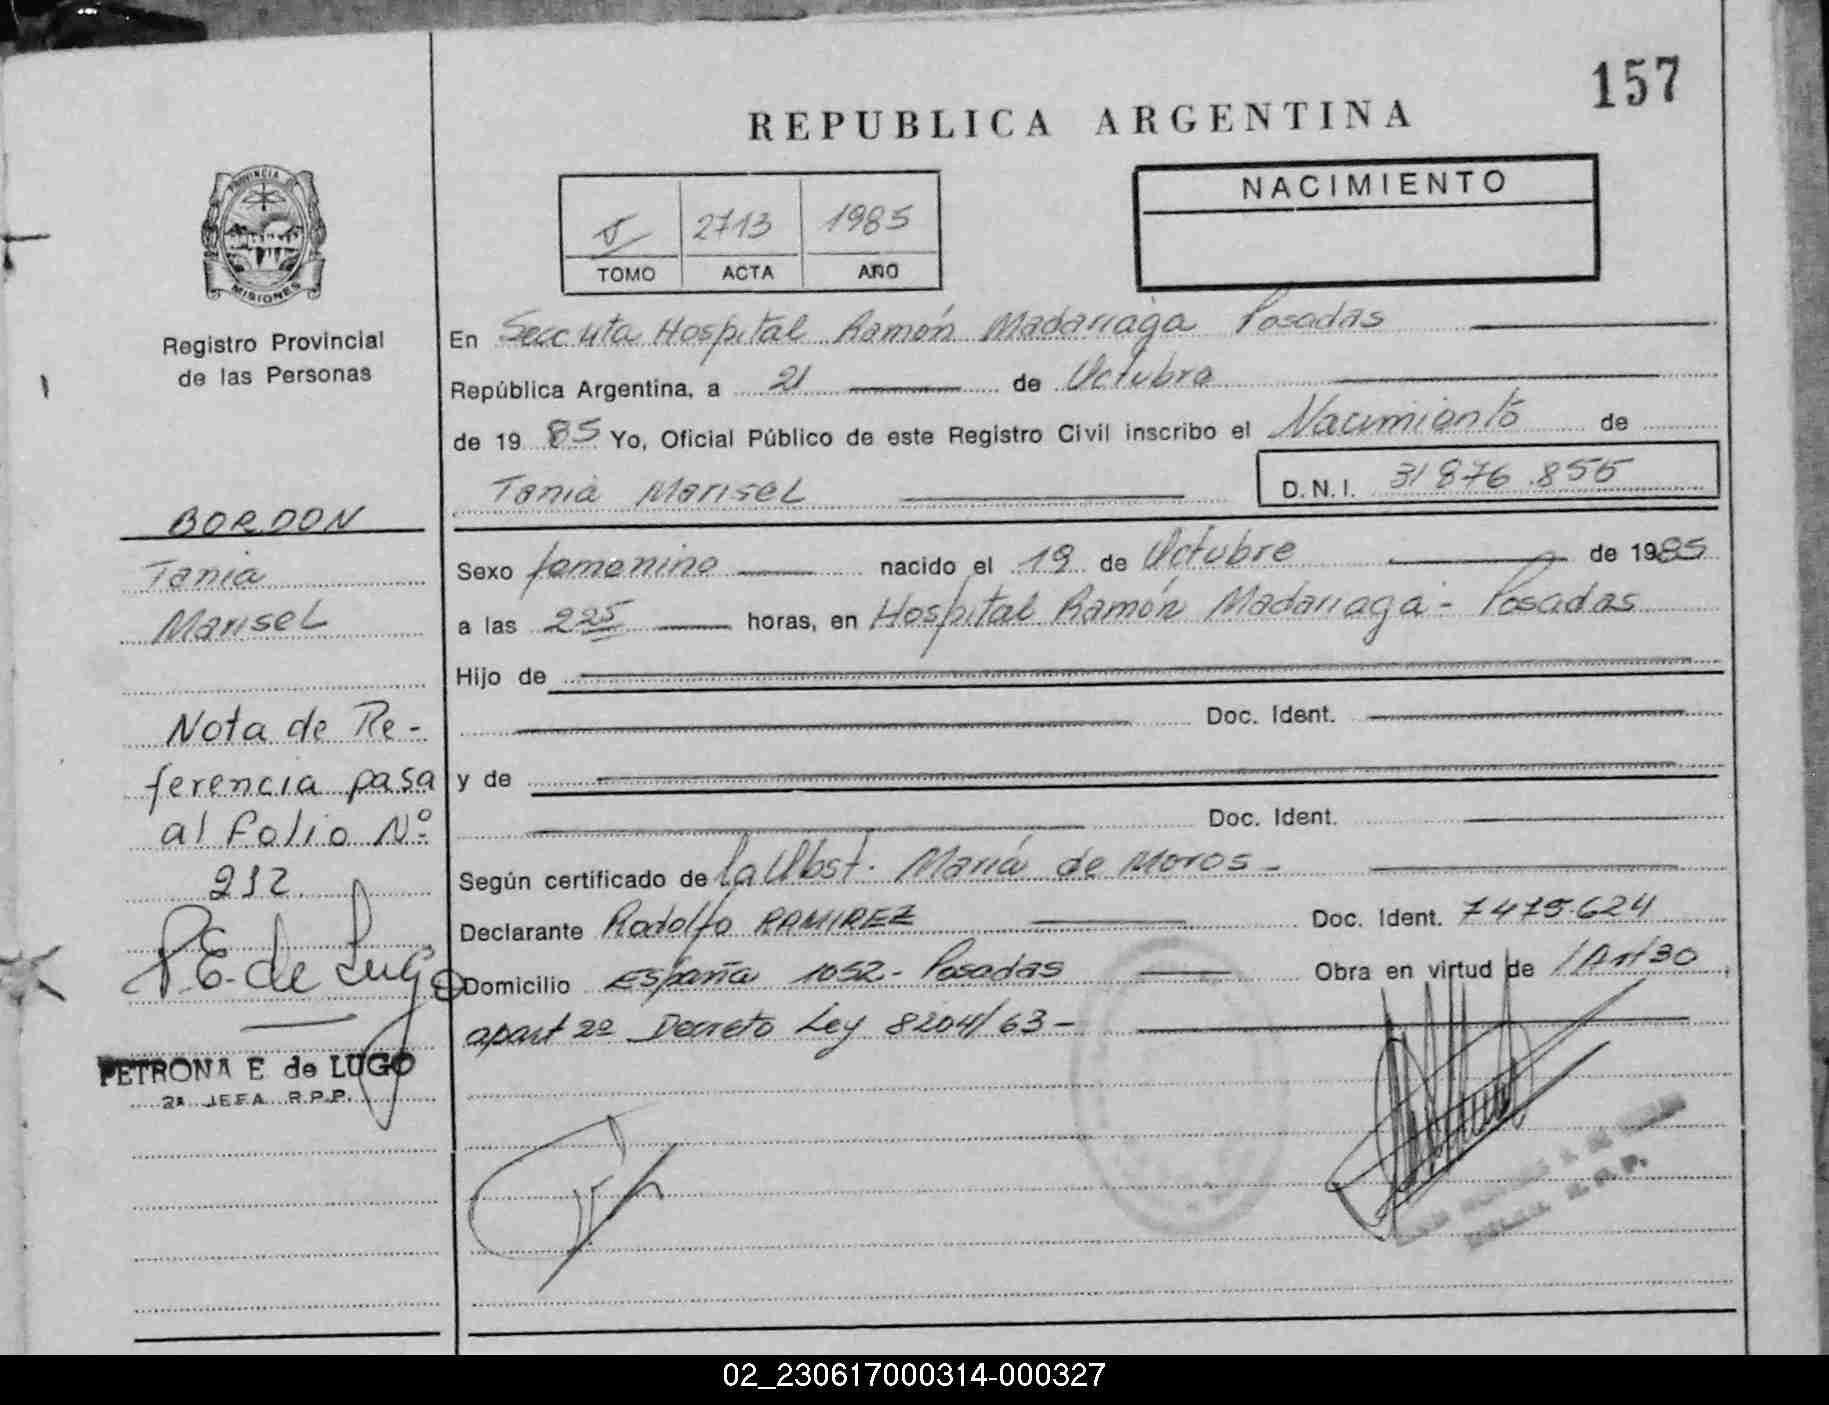 157
REPUBLICA ARGENTINA
PROVINCIA DE
MISIONES
Registro Provincial
de las Personas
5 2713 1985
TOMO ACTA AÑO
NACIMIENTO
En Secc uta Hospital Ramón Madariaga Posadas
República Argentina, a 21 de Octubre
de 1985 Yo, Oficial Público de este Registro Civil inscribo el Nacimiento de
Tania Marisel
D.N.I. 31 876 .855
BORDON
Tania
Marisel
Nota de Re-
ferencia pasa
al folio Nº
212.
P.E. de Lugo
PETRONA E de LUGO
2ª JEFA R.P.P.
Sexo femenino nacido el 19 de Octubre de 1985
a las 225 horas, en Hospital Ramón Madariaga - Posadas
Hijo de
Doc. Ident.
y de
Doc. Ident.
Según certificado de la Obst. María de Moros -
Declarante Rodolfo RAMIREZ Doc. Ident. 7475.624
Domicilio España 1052 - Posadas Obra en virtud de /Art 30
apart 2º Decreto Ley 8204/63 -
02_230617000314-000327